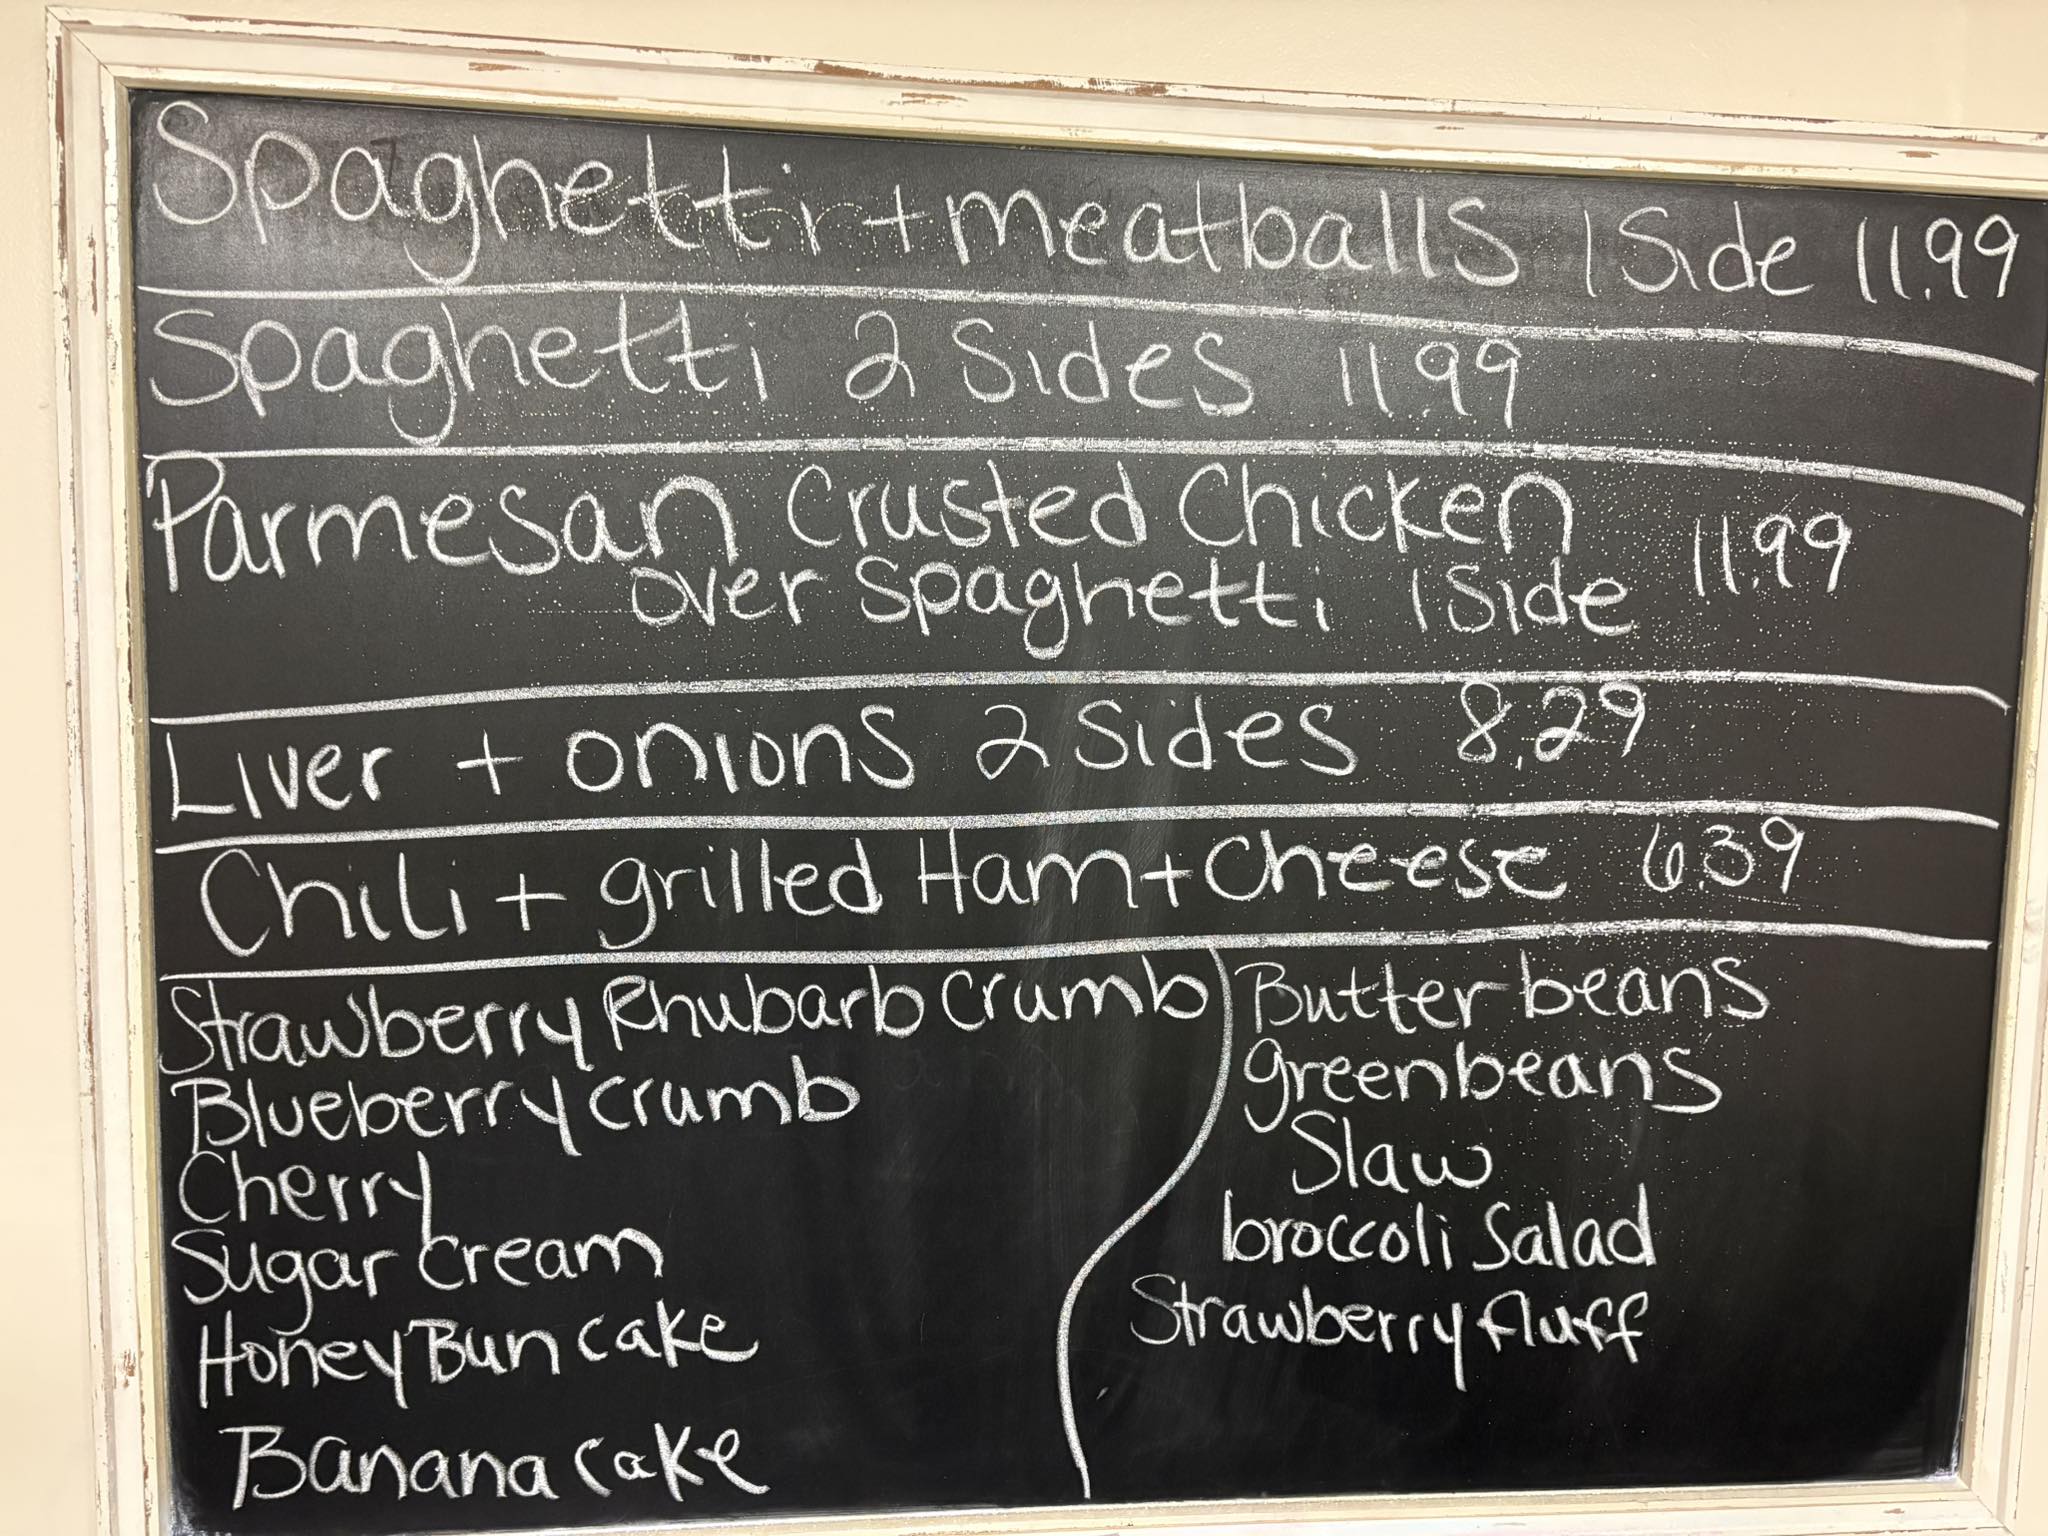 Spaghetti + meatballs 1 Side 11.99
Spaghetti 2 Sides 11.99
Parmesan Crusted Chicken 11.99
over spaghetti 1 Side
Liver + onions 2 Sides 8.29
Chili + grilled Ham + Cheese 6.39
Strawberry Rhubarb Crumb
Blueberry crumb
Cherry
Sugar Cream
Honey Bun cake
Banana cake
Butter beans
greenbeans
Slaw
broccoli Salad
Strawberry fluff